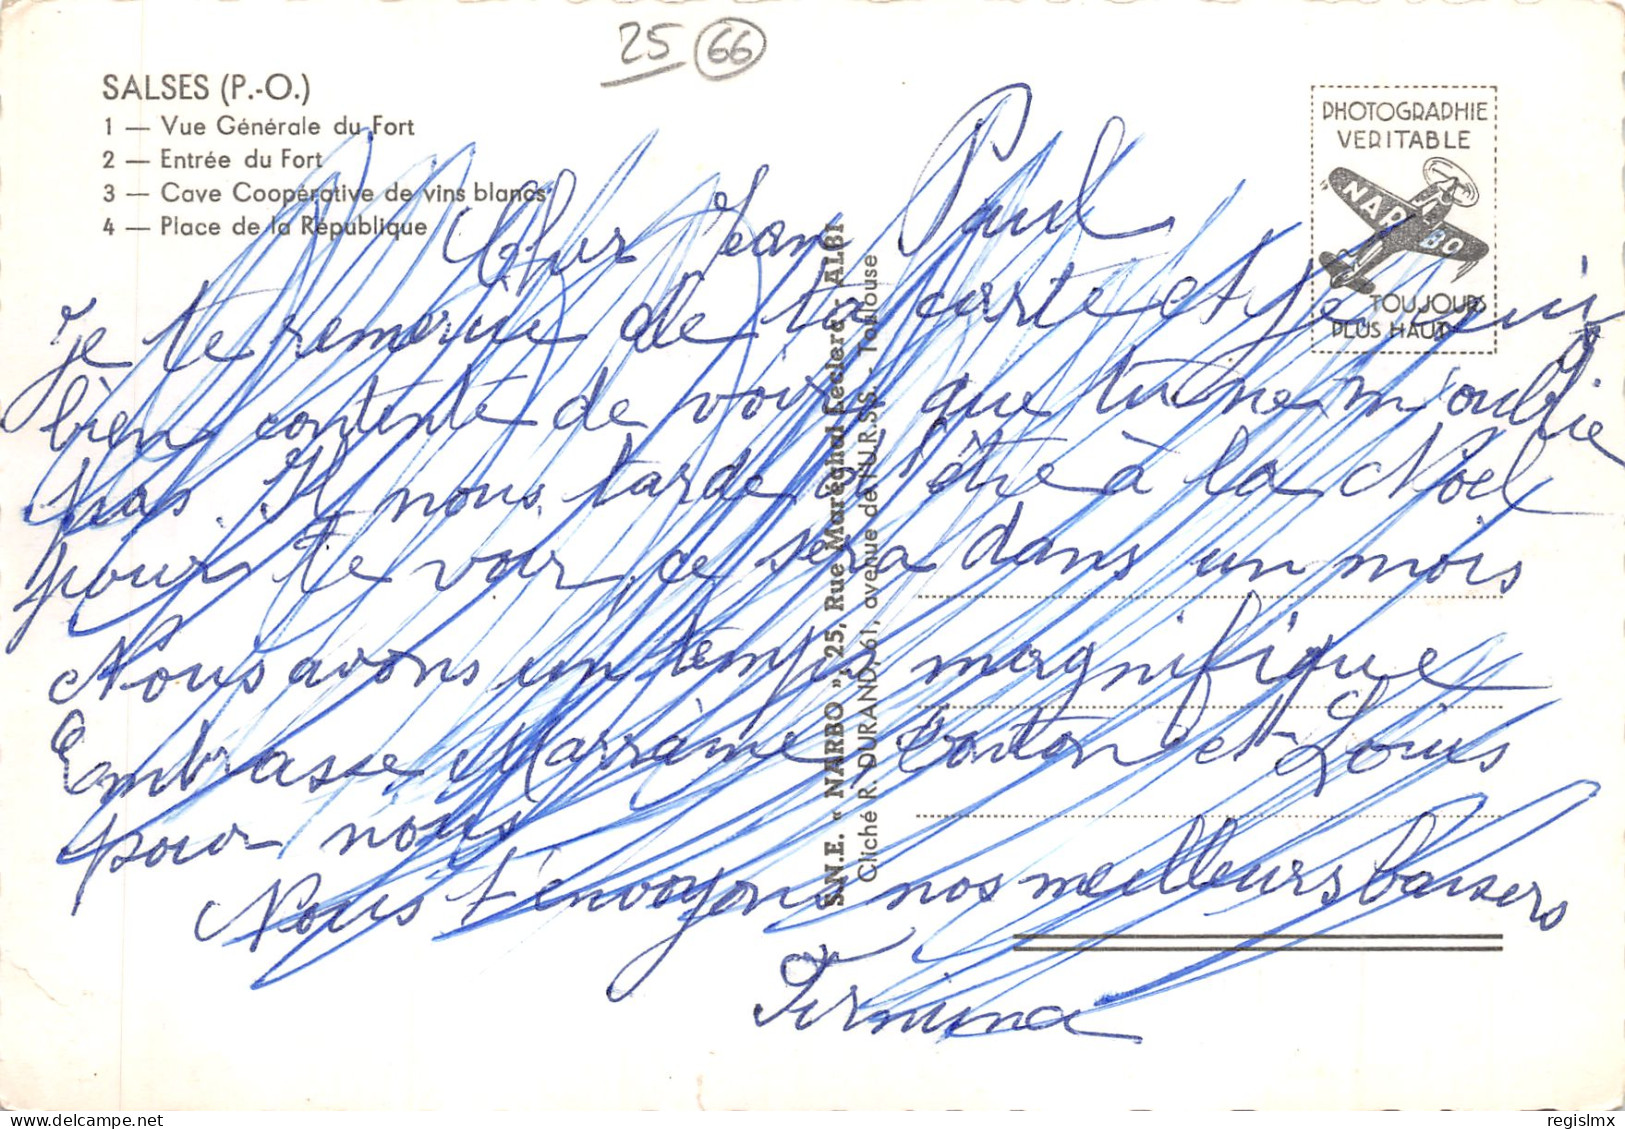 25 66
SALSES (P.-O.)
1 — Vue Générale du Fort
2 — Entrée du Fort
3 — Cave Coopérative de vins blancs
4 — Place de la République
PHOTOGRAPHIE
VERITABLE
NARBO
TOUJOURS
PLUS HAUT
Cher Jean Paul
Je te remercie de ta carte et je suis
bien contente de voir que tu ne m'oublie
pas. Il nous tarde d'être à la Noël
pour te voir, ce sera dans un mois
Nous avons un temps magnifique
Embrasse Marraine tonton et Louis
pour nous
Nous t'envoyons nos meilleurs baisers
Firmina
S.N.E. « NARBO », 25, Rue Maréchal Leclerc ALBI
Cliché R. DURAND, 61, avenue de l'U.R.S.S. - Toulouse
delcampe.net
regislmx